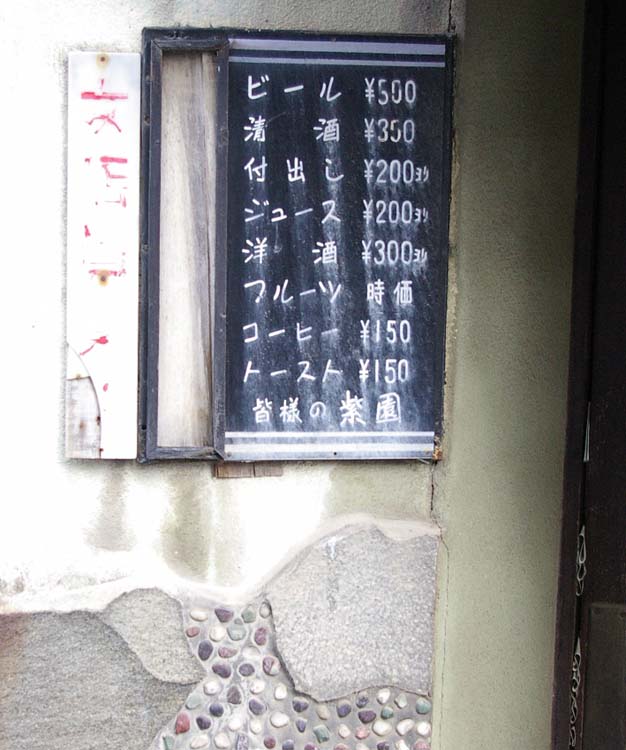 ビール ¥500
清酒 ¥350
付出し ¥200ヨリ
ジュース ¥200ヨリ
洋酒 ¥300ヨリ
フルーツ 時価
コーヒー ¥150
トースト ¥150
皆様の紫園